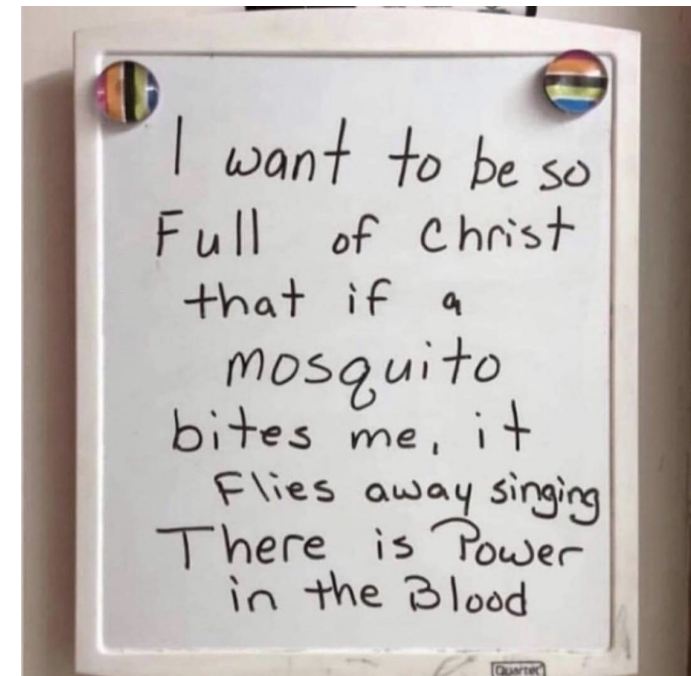 I want to be so
Full of Christ
that if a
mosquito
bites me, it
Flies away singing
There is Power
in the Blood
Quartet